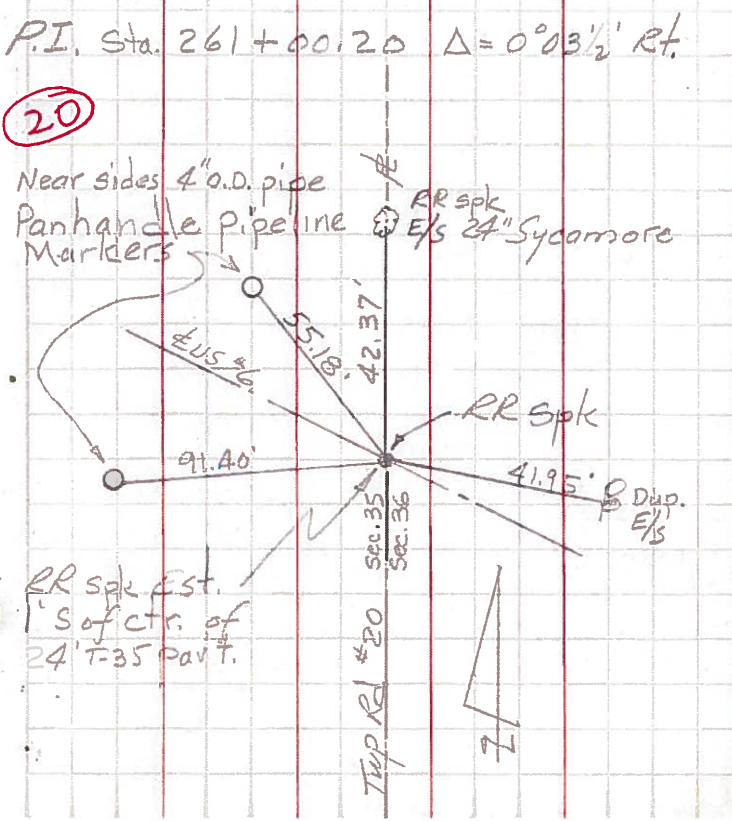 P.I. Sta. 261+00.20 Δ = 0°03½' Rt.
20
Near sides 4" O.D. pipe
Panhandle Pipeline
Markers
RR spk
E/S 24" Sycamore
55.18'
42.37'
℄ US #6
RR spk
91.40'
41.95'
Dup.
E/S
Sec. 35
Sec. 36
RR spk Est.
1' S of ctr. of
24' T-35 Pav't.
Twp Rd #20